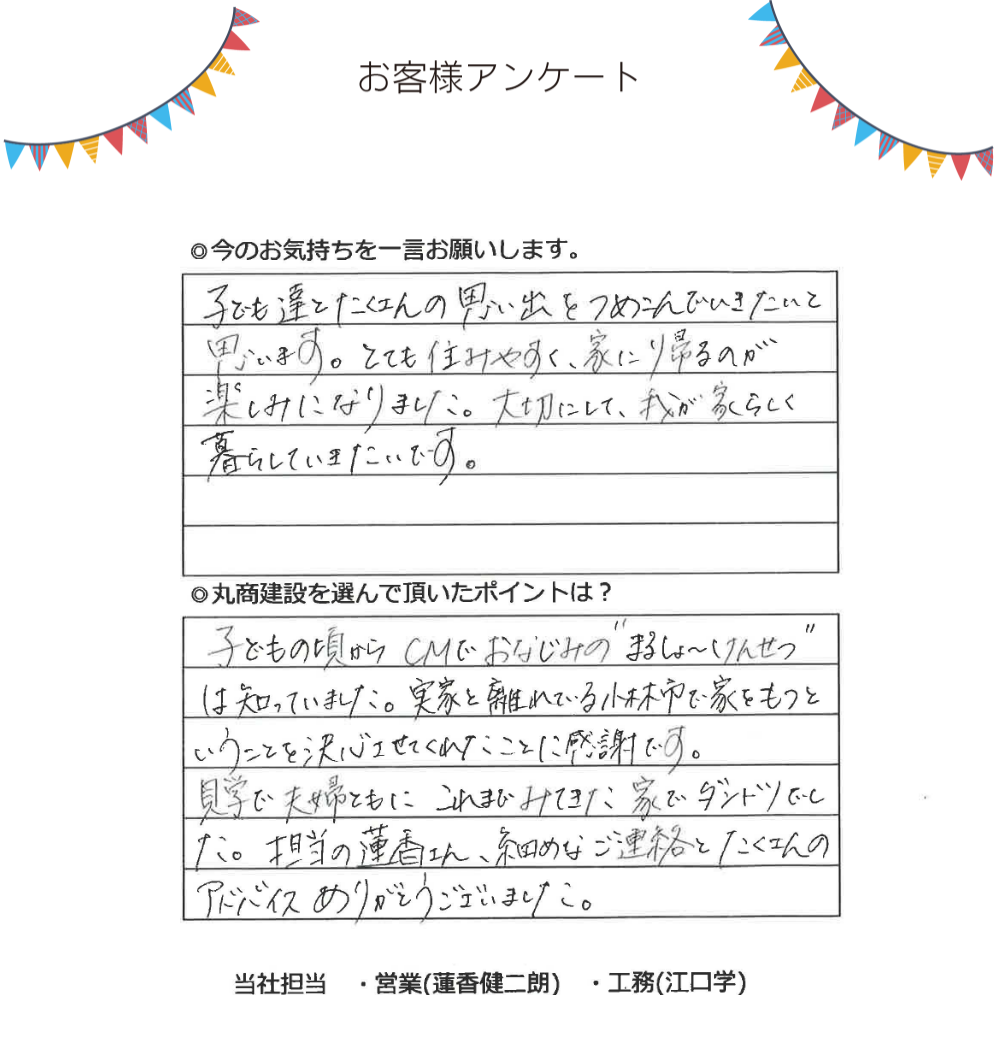 お客様アンケート
◎今のお気持ちを一言お願いします。
子ども達とたくさんの思い出をつめこんでいきたいと
思います。とても住みやすく、家に帰るのが
楽しみになりました。大切にして、我が家らしく
暮らしていきたいです。
◎丸商建設を選んで頂いたポイントは？
子どもの頃からCMでおなじみの"まるしょ～けんせつ"
は知っていました。実家と離れている小林市で家をもつと
いうことを決心させてくれたことに感謝です。
見学で夫婦ともにこれまでみてきた家でダントツでし
た。担当の蓮香さん、細めなご連絡とたくさんの
アドバイスありがとうございました。
当社担当　・営業(蓮香健二朗)　・工務(江口学)